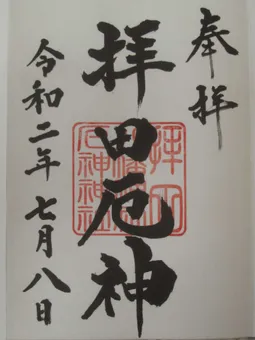 奉拝
拝田厄神
令和二年七月八日
拝田
厄神神社